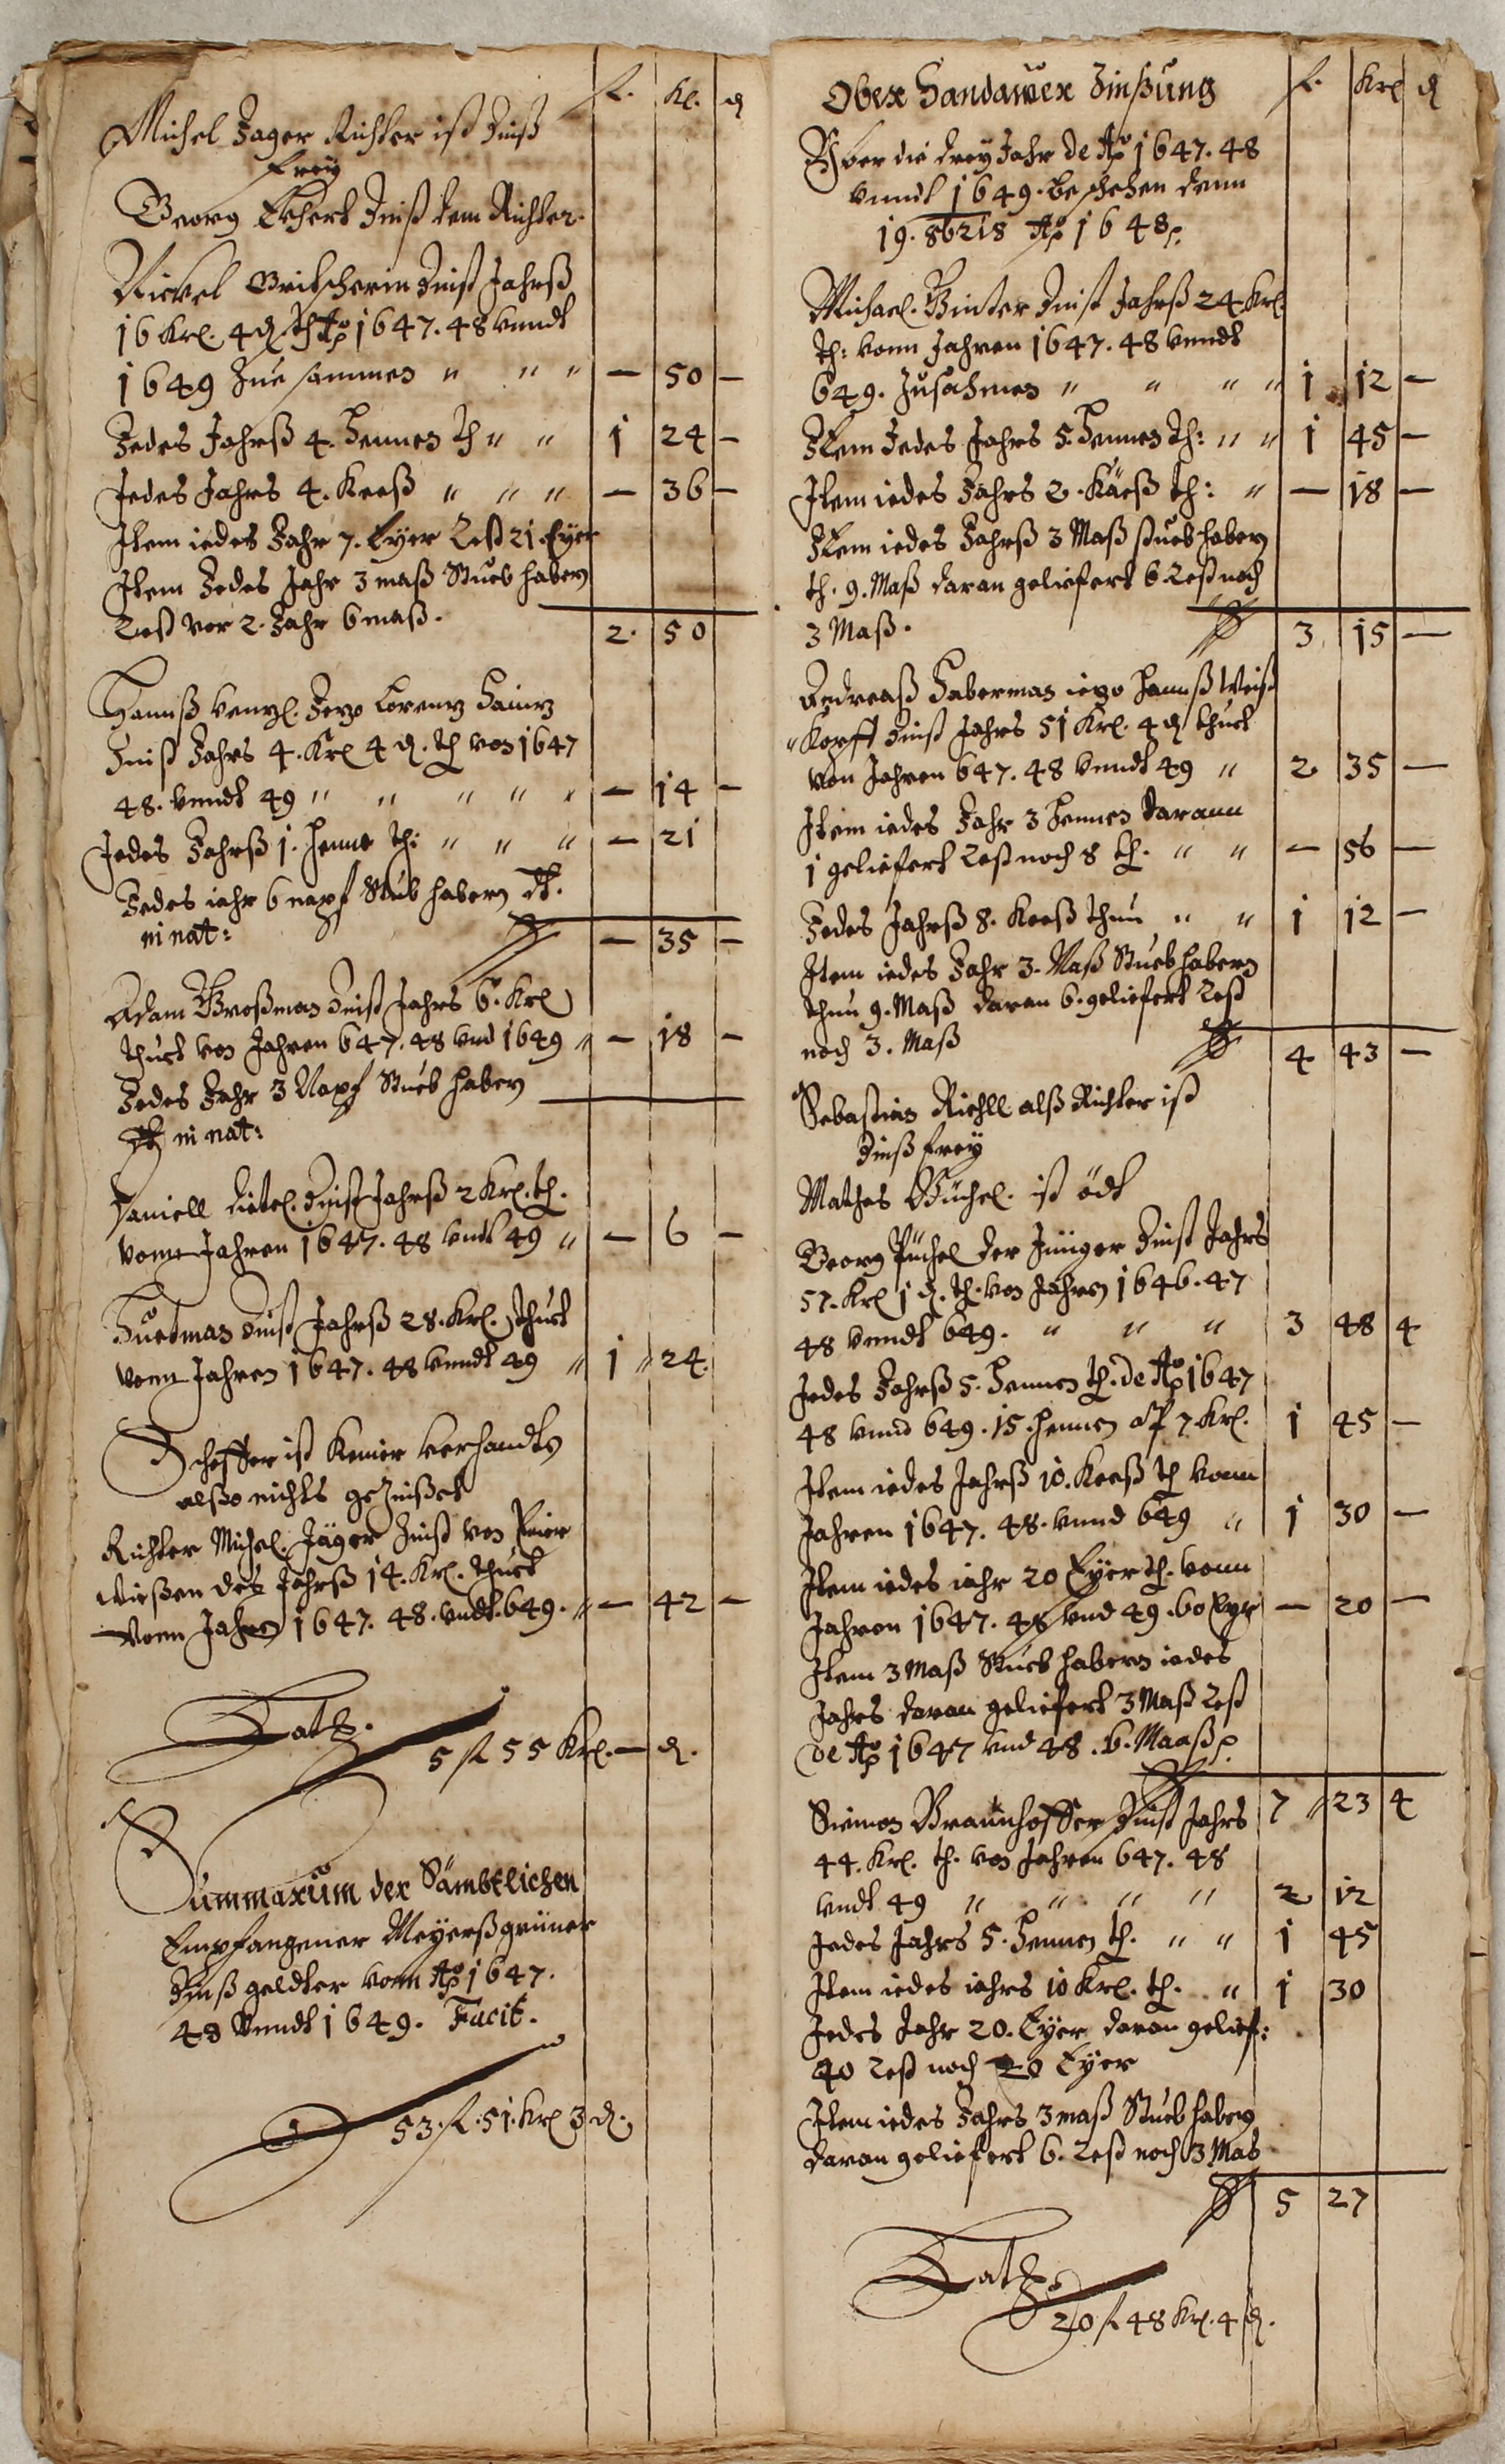 f. Kl. ₰
Michel Jager Richter ist Zinß
frey
Georg Zinst dem Richter.
Zinst Jahrß
16 Krl. 4 ₰ th Ao 1647. 48 vnndt
1649 Zue sammen " " " — 50 —
Jedes Jahrß 4. Hennen th " " 1 24 —
Jedes Jahrs 4. Keeß " " " — 36 —
Item iedes Jahr 7. Eyer Rest 21 Eyer
Item Jedes Jahr 3 maß Stueb habern
Rest vor 2. Jahr 6 maß.
2. 50
Hannß Jezo Lorenz
Zinst Jahrs 4. Krl 4 ₰. th von 1647
48. vnndt 49 " " " " " — 14 —
Jedes Jahrß 1. Henne th: " " " — 21
Jedes iahr 6 napf Stüb habern
in nat:
— 35 —
Adam Großman Zinst Jahrs 6. Krl
thuet von Jahren 647. 48 vnd 1649 " — 18 —
Jedes Jahr 3 Napf Stueb habern
in nat:
Daniell Zinst Jahrß 2 Krl. th.
vonn Jahren 1647. 48 vndt 49 " — 6 —
Huetman Zinst Jahrß 28. Krl. thuet
vonn Jahren 1647. 48 vnndt 49 " 1 " 24.
Scheffer ist Keiner verhandten
alßo nichts geZinßet
Richter Michel Jäger Zinst von
wießen des Jahrß 14. Krl. thuet
vonn Jahren 1647. 48. vndt. 649. " — 42 —
Latus.
5 f 55 Krl. — ₰.
Summarum der Sämbtlichen
Empfangener Meyerßgrüner
Zinß geldter vonn Ao 1647.
48 Vnndt 1649. Facit.
53. f. 51. Krl 3 ₰.
Ober Sandawer Zinßung f. Krl ₰
Vber die drey Jahr de Ao 1647. 48
vnndt 1649. beschehen denn
19. 8bris Ao 1648
Michael Zinst Jahrß 24 Krl
th: vonn Jahren 1647. 48 vnndt
649. Zusahmen " " " " 1 12 —
Item Jedes Jahrs 5. Hennen th: " " 1 45 —
Item iedes Jahrs 2. Käeß th: " — 18 —
Item iedes Jahrß 3 Maß stueb habern
th. 9. Maß daran geliefert 6 Rest noch
3 Maß.
3 15 —
Andreaß Haberman iezo Hannß Weiß
Kopff Zinst Jahrs 51 Krl. 4 ₰ thuet
von Jahren 647. 48 vnndt 49 " 2 35 —
Item iedes Jahr 3 Hennen darann
1 geliefert Rest noch 8 th. " " — 56 —
Jedes Jahrß 8. Keeß thuu " " 1 12 —
Item iedes Jahr 3. Maß Stueb habern
thuu 9. Maß daran 6. geliefert Rest
noch 3. Maß
4 43 —
Sebastian Riehll alß Richter ist
Zinß frey
Mathes Püchel. ist ödt
Georg Püchel der Jünger Zinst Jahrs
57. Krl 1 ₰. th. von Jahren 1646. 47
48 vnndt 649. " " " 3 48 4
Jedes Jahrß 5. Hennen th. de Ao 1647
48 vnnd 649. 15. hennen 7 Krl. 1 45 —
Item iedes Jahrß 10. Keeß th vonn
Jahren 1647. 48. vnnd 649 " 1 30 —
Item iedes iahr 20 Eyer th. vonn
Jahren 1647. 48 vnd 49. 60 Eyr — 20 —
Item 3 Maß Stueb habern iedes
Jahrs daran geliefert 3 Maß Rest
de Ao 1647 vnd 48. 6. Maaß
7 23 4
Simon Braunhoffer Zinst Jahrs
44. Krl. th. von Jahren 647. 48
vndt 49 " " " " 2 12
Jedes Jahrs 5. Hennen th. " " 1 45
Item iedes iahrs 10 Krl. th. " 1 30
Jedes Jahr 20. Eyer daran gelief:
40 Rest noch 20 Eyer
Item iedes Jahrs 3 maß Stueb habern
daran geliefert 6. Rest noch 3 Mas
5 27
Latus
20 f 48 Krl. 4 ₰.